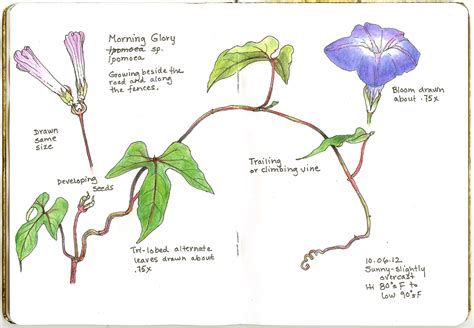 Morning Glory
Ipomoea sp.
Ipomoea
Growing beside the
road and along
the fences.
Drawn
same
size
Developing
seeds
Tri-lobed alternate
leaves drawn about
.75x
Bloom drawn
about .75x
Trailing
or climbing vine
10.06.12
Sunny-slightly
overcast
Hi 80°s F to
low 90°s F